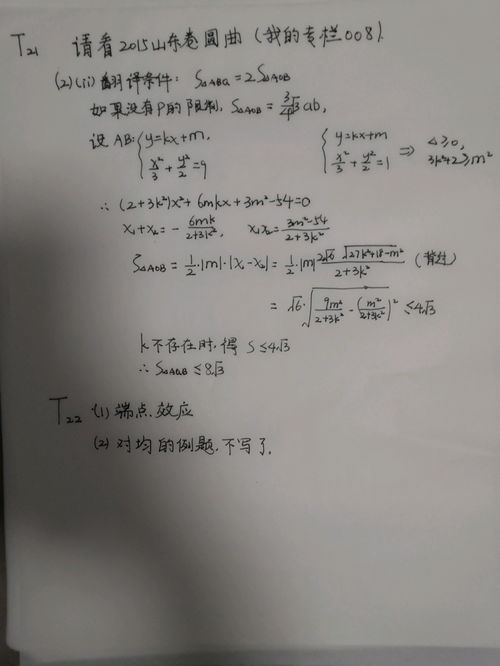 T21 请看2015山东卷圆曲(我的专栏008).
(2)(ii) 翻译条件: S△ABQ=2S△AOB
如果没有P的限制, S△AOB= ab,
设AB: { y=kx+m, x²/3+y²/2=9 { y=kx+m x²/3+y²/2=1 ⇒ △≥0, 3k²+2≥m²
∴ (2+3k²)x²+6mkx+3m²-54=0
x₁+x₂=-6mk/(2+3k²), x₁x₂=(3m²-54)/(2+3k²)
S△AOB=1/2·|m|·|x₁-x₂|=1/2·|m|·2√6·√(27k²+18-m²)/(2+3k²)
=√6·√(9m²/(2+3k²)-(m²/(2+3k²))²)≤4√3
k不存在时,得 S≤4√3
∴ S△AQB≤8√3
T22 (1) 端点效应
(2) 对均的例题,不写了.